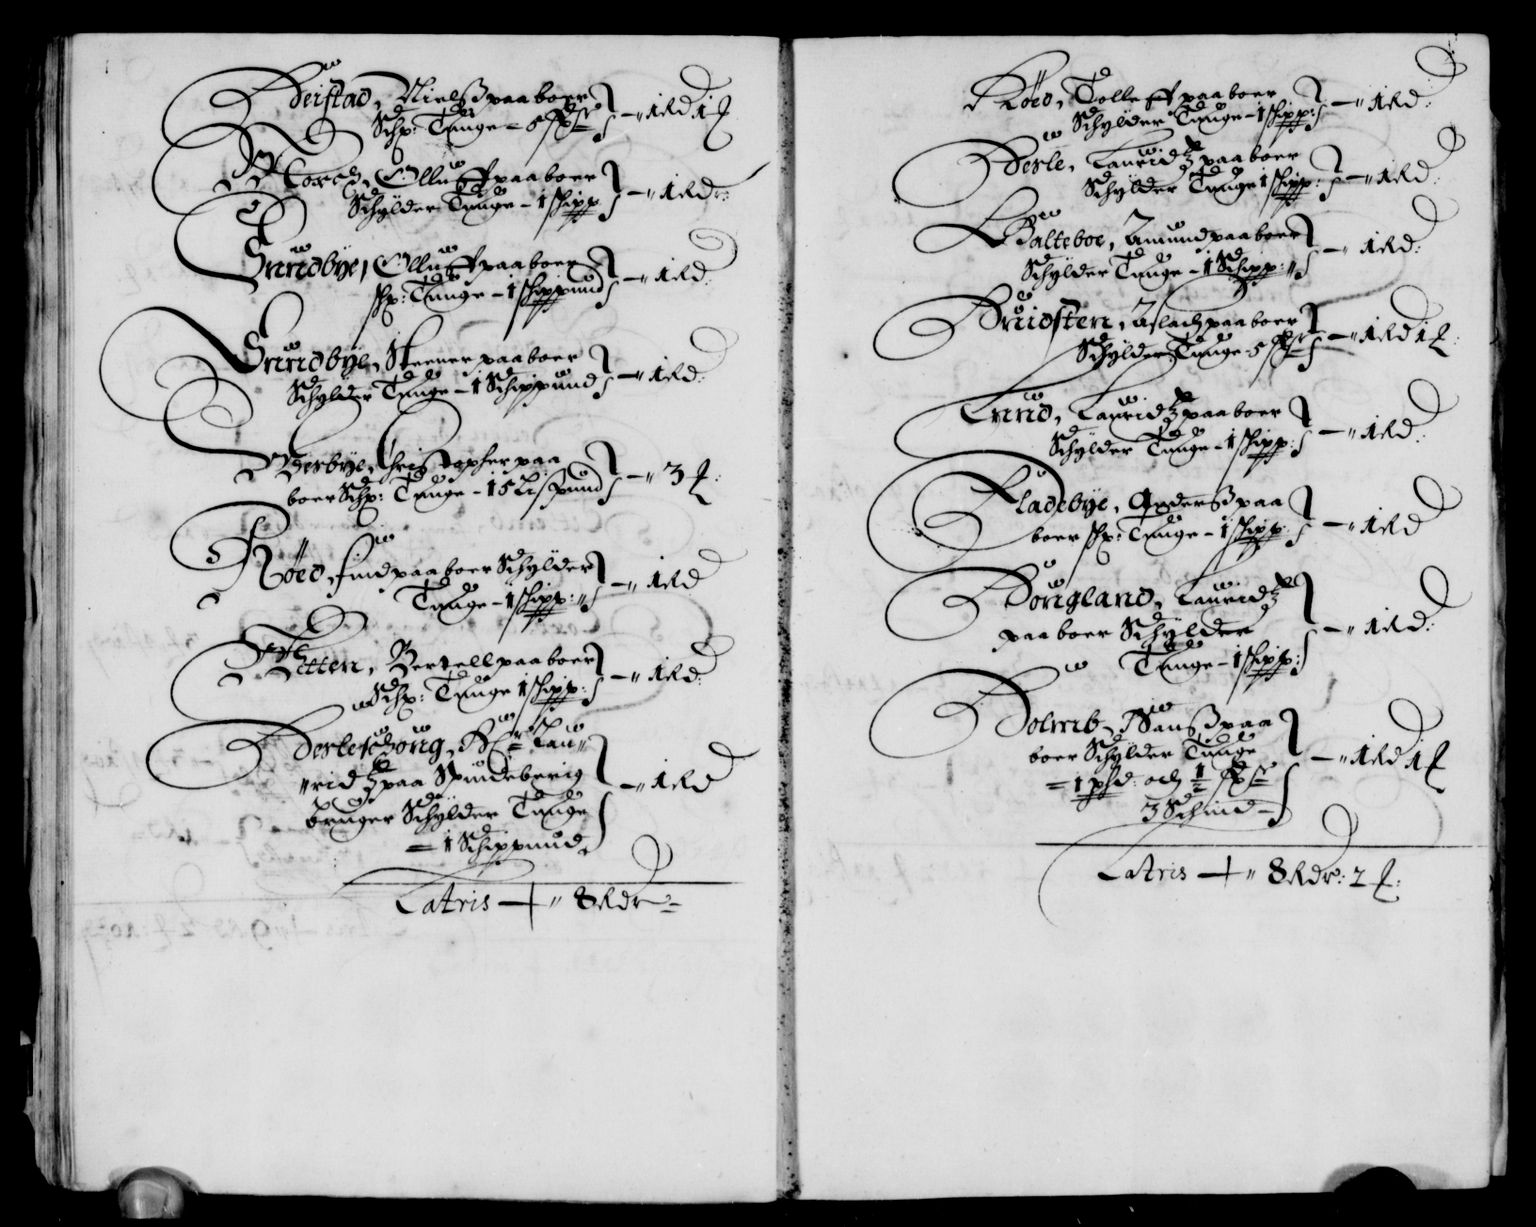 Deistad, Nielß paaboer
Schp: Tunge – 5 – " 1 Rd 1 ℔
Torod, Olluff paaboer
Schylder Tunge – 1 schipp – " 1 Rdr:
Sundbye, Olluff paaboer
schp: Tunge – 1 schippund – " 1 Rd:
Sundbye, Steener paaboer
Schylder Tunge – 1 Schippund – " 1 Rd:
Berbye, Christopher paa
boer Schp: Tunge – 15 Lispund – " 3 ℔:
Röed, find paaboer Schylder
Tunge – 1 schipp: " – " 1 Rd
Tetten, Bertell paaboer
Schp: Tunge 1 schipp: – " 1 Rd:
Berleschoug, Hr: Lau"
"ridz paa Spindeberig
bruger Schylder Tunge – " 1 Rd
= 1 Schippund
Latris — " 8 Rdr
Röed, Tolleff paaboer
Schylder Tunge – 1 schipp: – " 1 Rd:
Berle, Lauridz paaboer
Schylder Tunge 1 schipp: – " 1 Rd:
Balteboe, Amund paaboer
Schylder Tunge – 1 Schipp: " – " 1 Rd:
Bruidsten, Aslach paaboer
Schylder Tunge – 5 – " 1 Rd 1 ℔:
Lund, Lauridz paaboer
Schylder Tunge – 1 schipp: – " 1 Rd:
Fladebye, Anderß paa
boer schp: Tunge – 1 schipp: – " 1 Rd
Dougland, Lauridz
paaboer Schylder – " 1 Rd:
Tunge – 1 schipp:
Dolmb, Hanß paa
boer Schylder Tunge
= 1 phd: och ½ – " 1 Rd 1 ℔
3 Schind –
Latris — " 8 Rdr: 2 ℔: